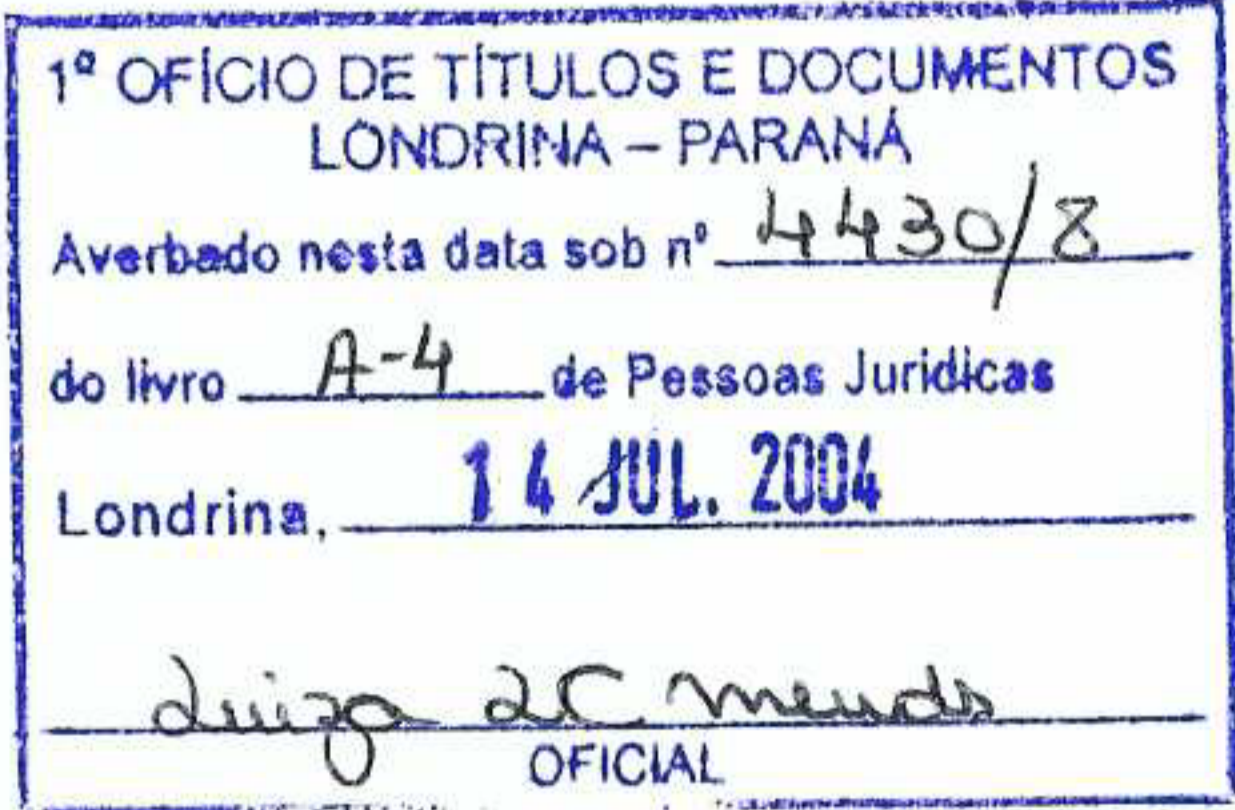 1º OFÍCIO DE TÍTULOS E DOCUMENTOS
LONDRINA – PARANÁ
Averbado nesta data sob nº 4430/8
do livro A-4 de Pessoas Juridicas
Londrina, 14 JUL. 2004
Luiza
OFICIAL